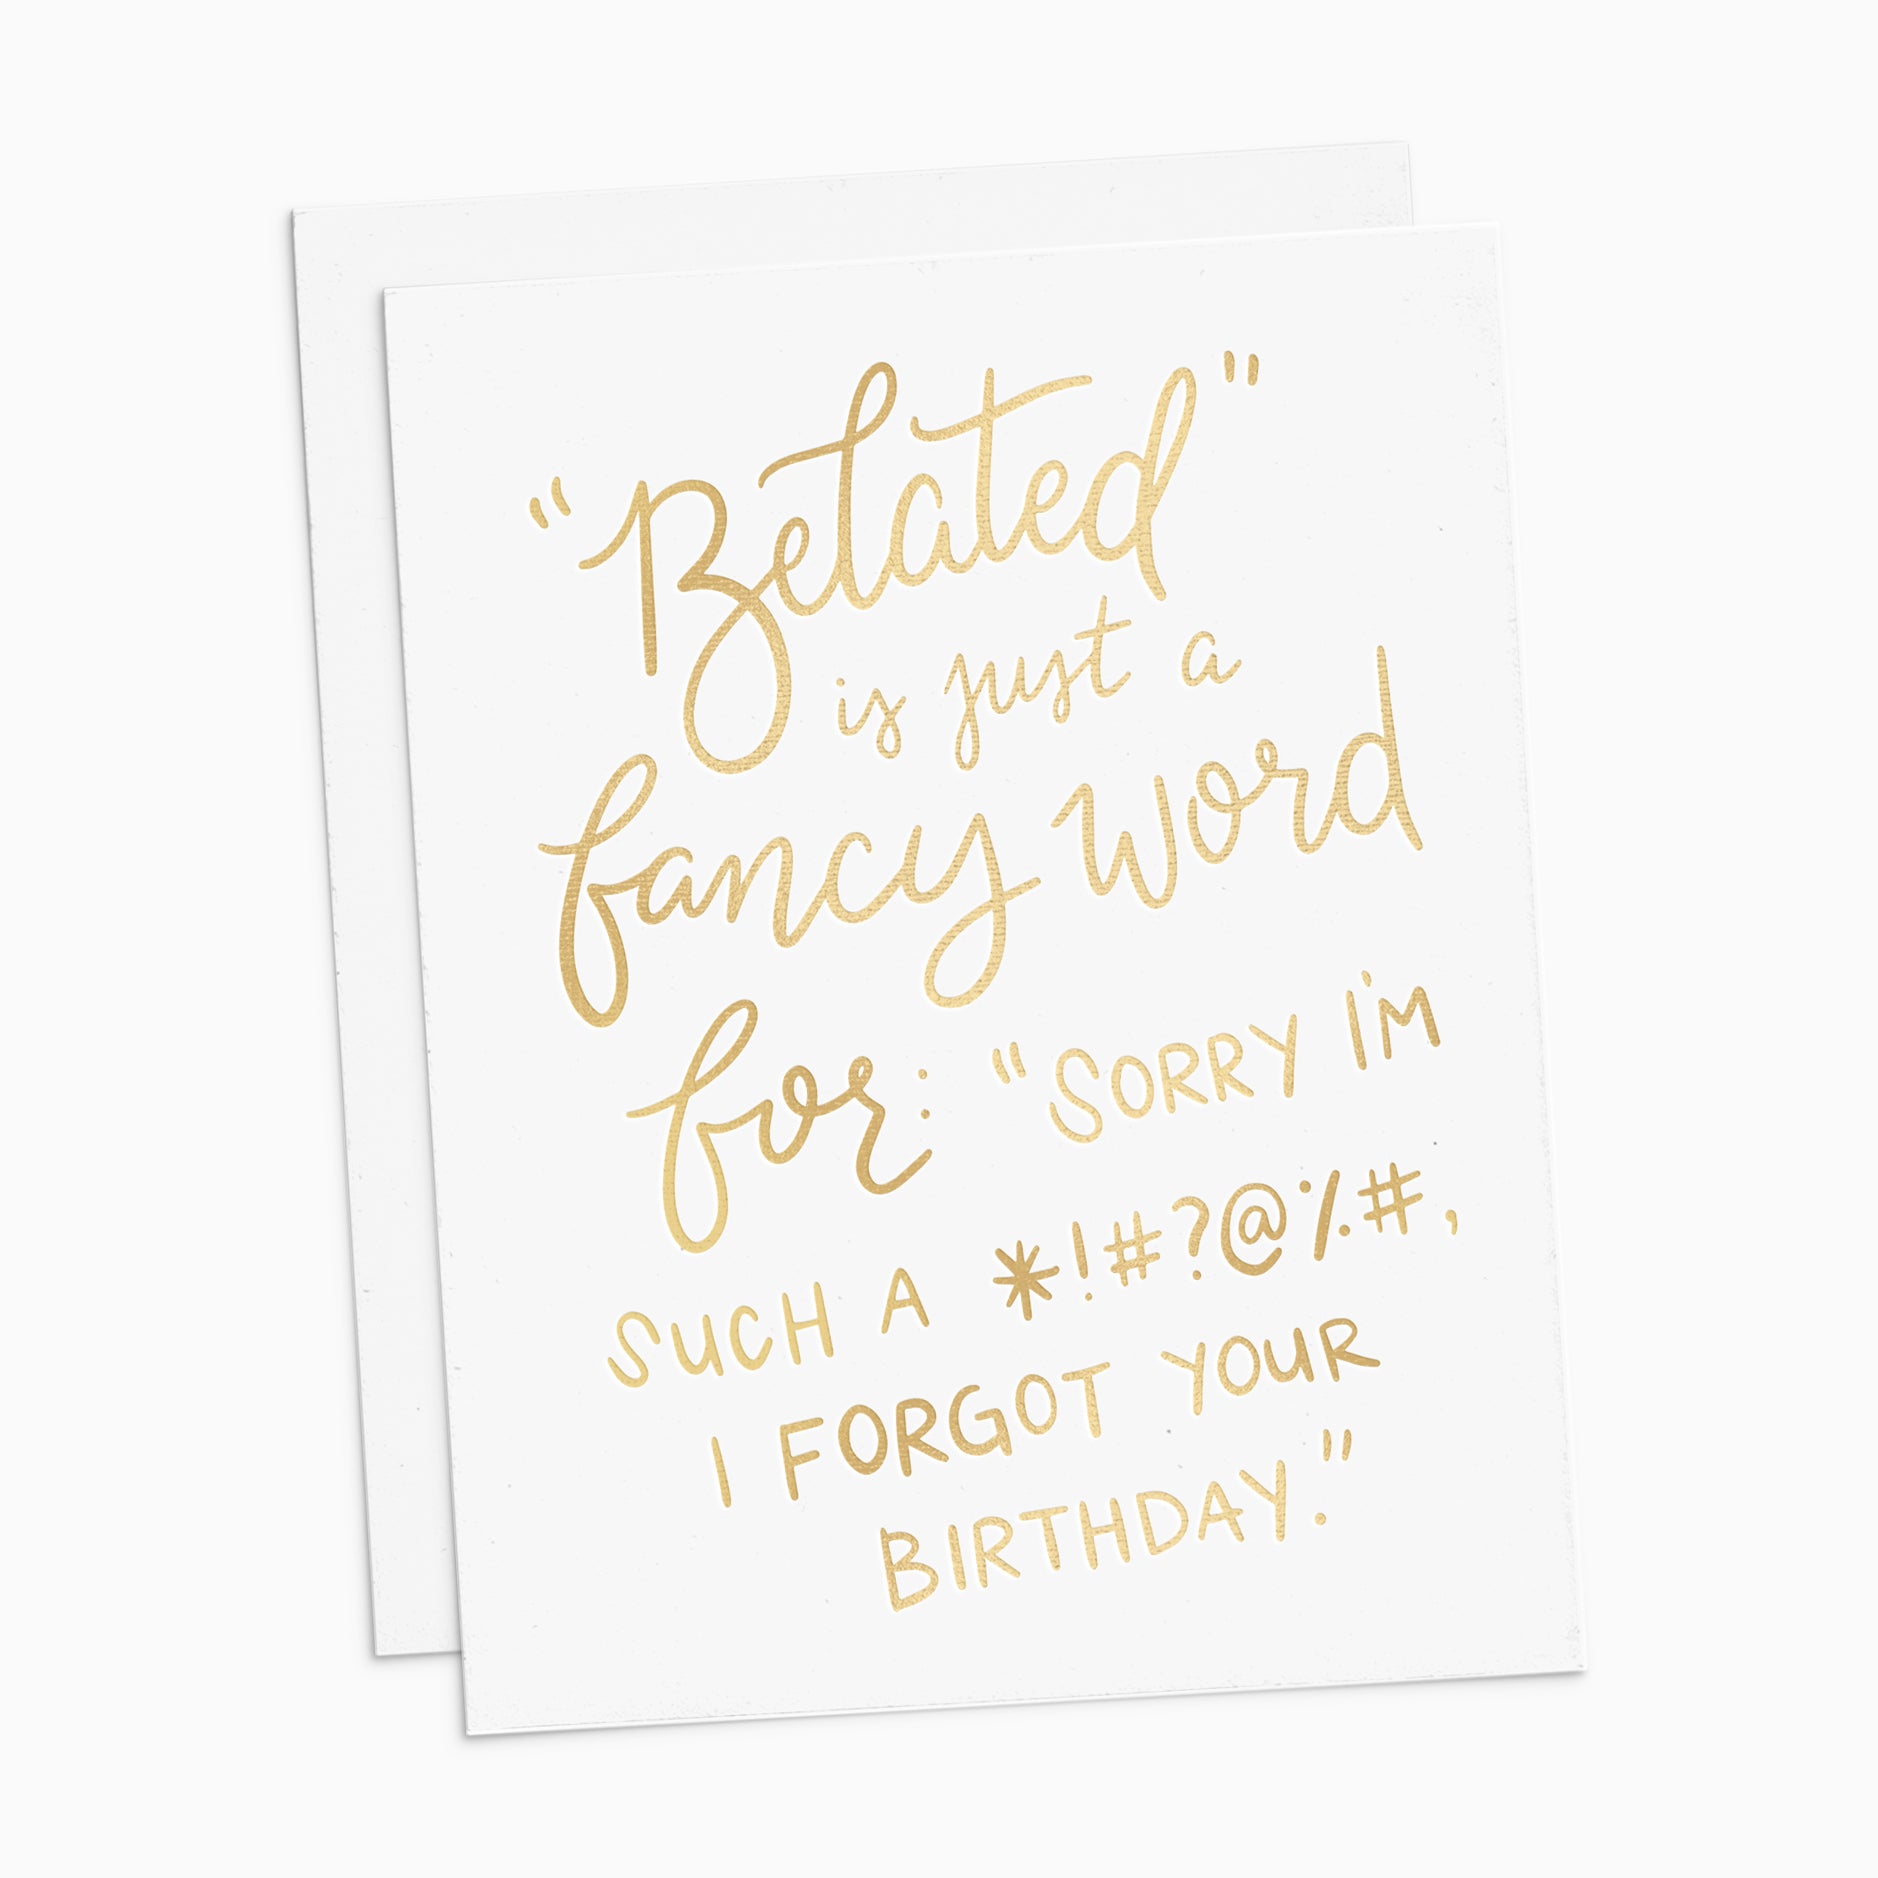 "Belated"
is just a
fancy word
for: "SORRY I'M
SUCH A *!#?@%#,
I FORGOT YOUR
BIRTHDAY."